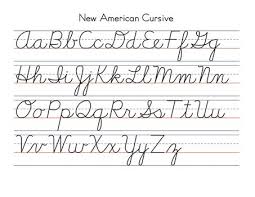 New American Cursive
AaBbCcDdEeFfGg
HhIiJjKkLlMmNn
OoPpQqRrSsTtUu
VvWwXxYyZz